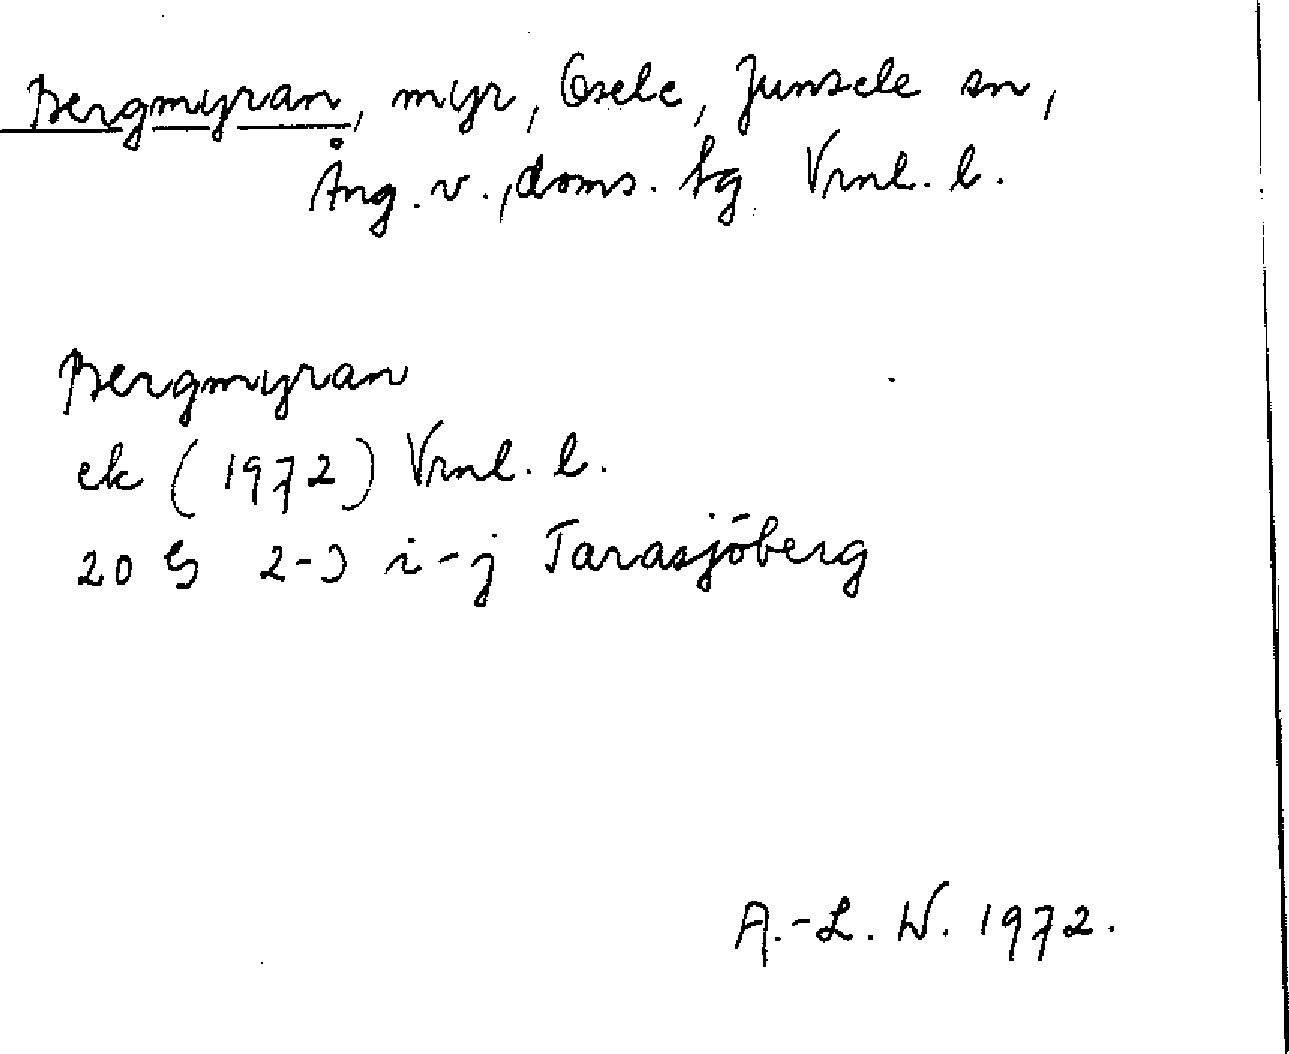 Bergmyran, myr, Eselc, Junsele sn,
Ång. v., doms. fg Vrnl. l.
Bergmyran
ek (1972) Vrnl. l.
20 G 2-3 i-j Tarasjöberg
A.-L. W. 1972.